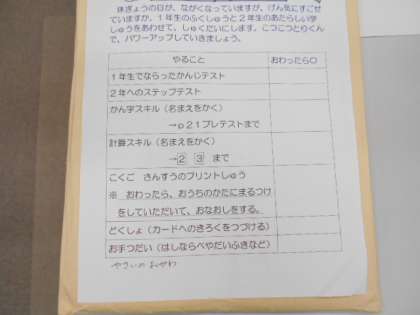 休ぎょうの日が、ながくなっていますが、げん気にすごせ
ていますか。１年生のふくしゅうと２年生のあたらしい学
しゅうをあわせて、しゅくだいにします。こつこつとりくん
で、パワーアップしていきましょう。
やること おわったら○
１年生でならったかんじテスト
２年へのステップテスト
かん字スキル（名まえをかく）
→ｐ２１プレテストまで
計算スキル（名まえをかく）
→２ ３ まで
こくご さんすうのプリントしゅう
※ おわったら、おうちのかたにまるつけ
をしていただいて、おなおしをする。
どくしょ（カードへのきろくをつづける）
お手つだい（はしならべやだいふきなど）
やさいのおせわ